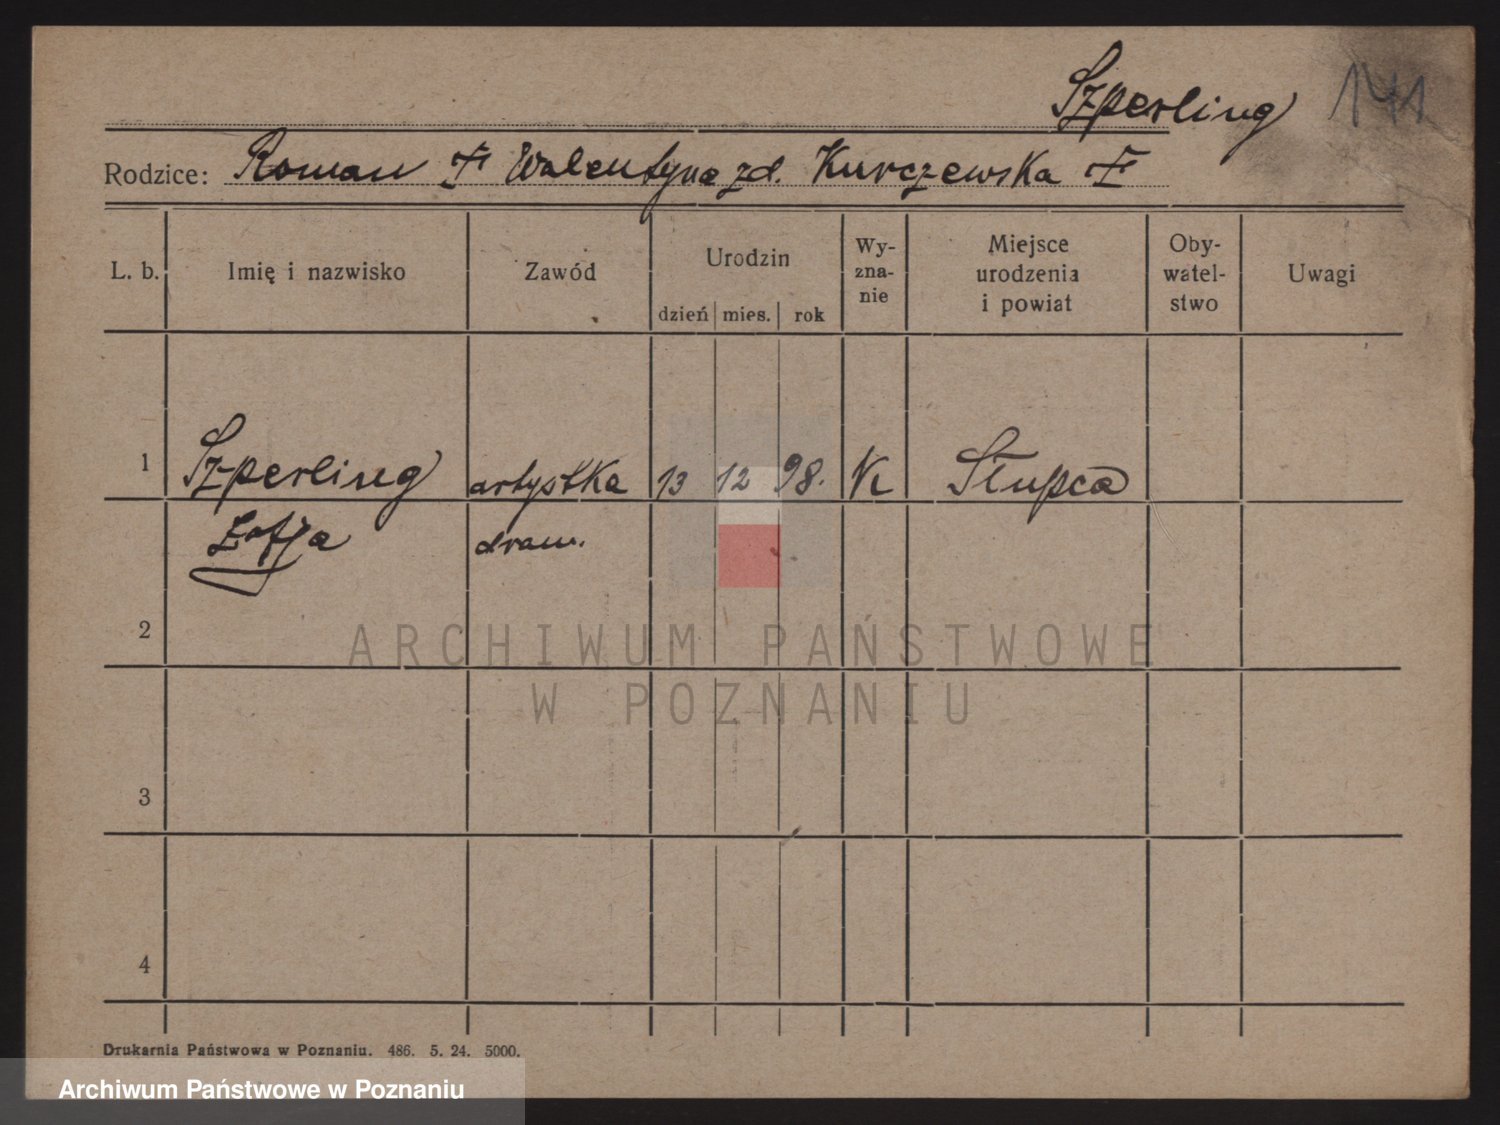 Szperling 141
Rodzice: Roman † Walentyna zd. Kurczewska †
L. b. Imię i nazwisko Zawód Urodzin dzień mies. rok Wy-zna-nie Miejsce urodzenia i powiat Oby-watel-stwo Uwagi
1 Szperling artystka 13 12 98. K Słupca
Zofja dram.
2
ARCHIWUM PAŃSTWOWE
W POZNANIU
3
4
Drukarnia Państwowa w Poznaniu. 486. 5. 24. 5000.
Archiwum Państwowe w Poznaniu